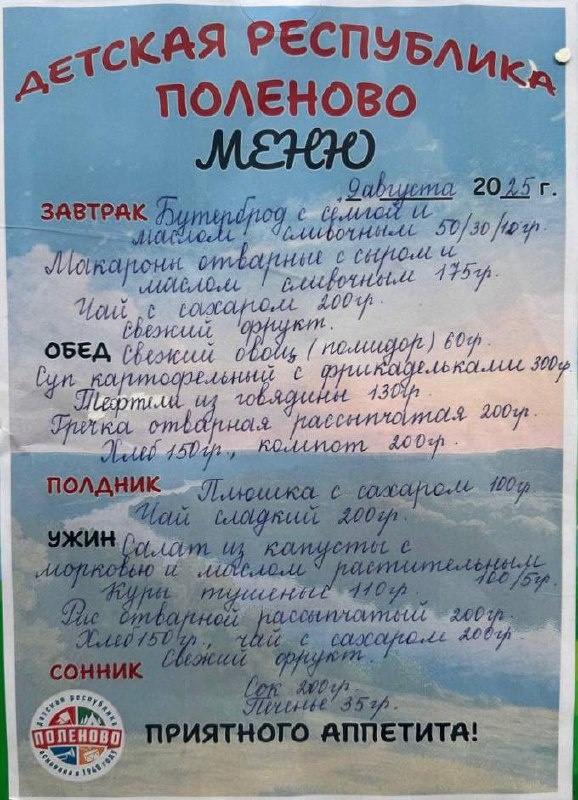 ДЕТСКАЯ РЕСПУБЛИКА
ПОЛЕНОВО
МЕНЮ
9 августа 2025 г.
ЗАВТРАК Бутерброд с сёмгой и
маслом сливочным 50/30/10гр.
Макароны отварные с сыром и
маслом сливочным 175гр.
Чай с сахаром 200гр.
Свежий фрукт.
ОБЕД Свежий овощ (помидор) 60гр.
Суп картофельный с фрикадельками 300гр.
Тефтели из говядины 130гр.
Гречка отварная рассыпчатая 200гр.
Хлеб 150гр., компот 200гр.
ПОЛДНИК Плюшка с сахаром 100гр
Чай сладкий 200гр.
УЖИН Салат из капусты с
морковью и маслом растительным
100/5гр.
Куры тушеные 110гр.
Рис отварной рассыпчатый 200гр.
Хлеб 150гр., чай с сахаром 200гр.
Свежий фрукт.
СОННИК
Сок 200гр.
Печенье 35гр.
ПРИЯТНОГО АППЕТИТА!
детская республика
ПОЛЕНОВО
основана в 1948 году